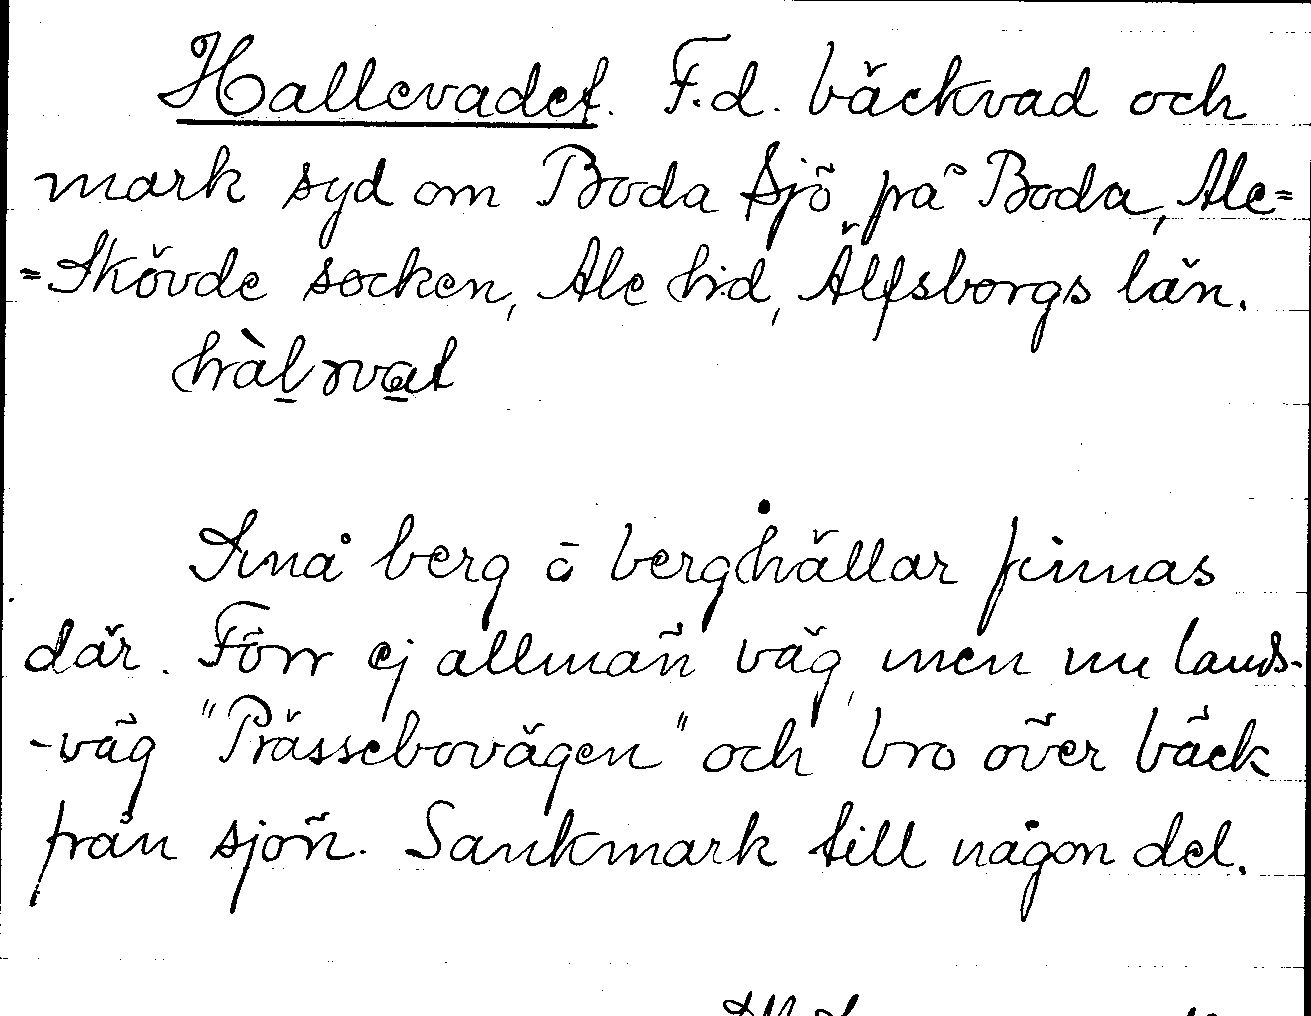 Hallevadet. F.d. bäckvad och
mark syd om Boda sjö på Boda, Ale=
=Skövde socken, Ale hd, Älfsborgs län.
Små berg å berghällar finnas
där. Förr ej allmän väg, men nu lands-
-väg "Prässebovägen" och bro över bäck
från sjön. Sankmark till någon del.